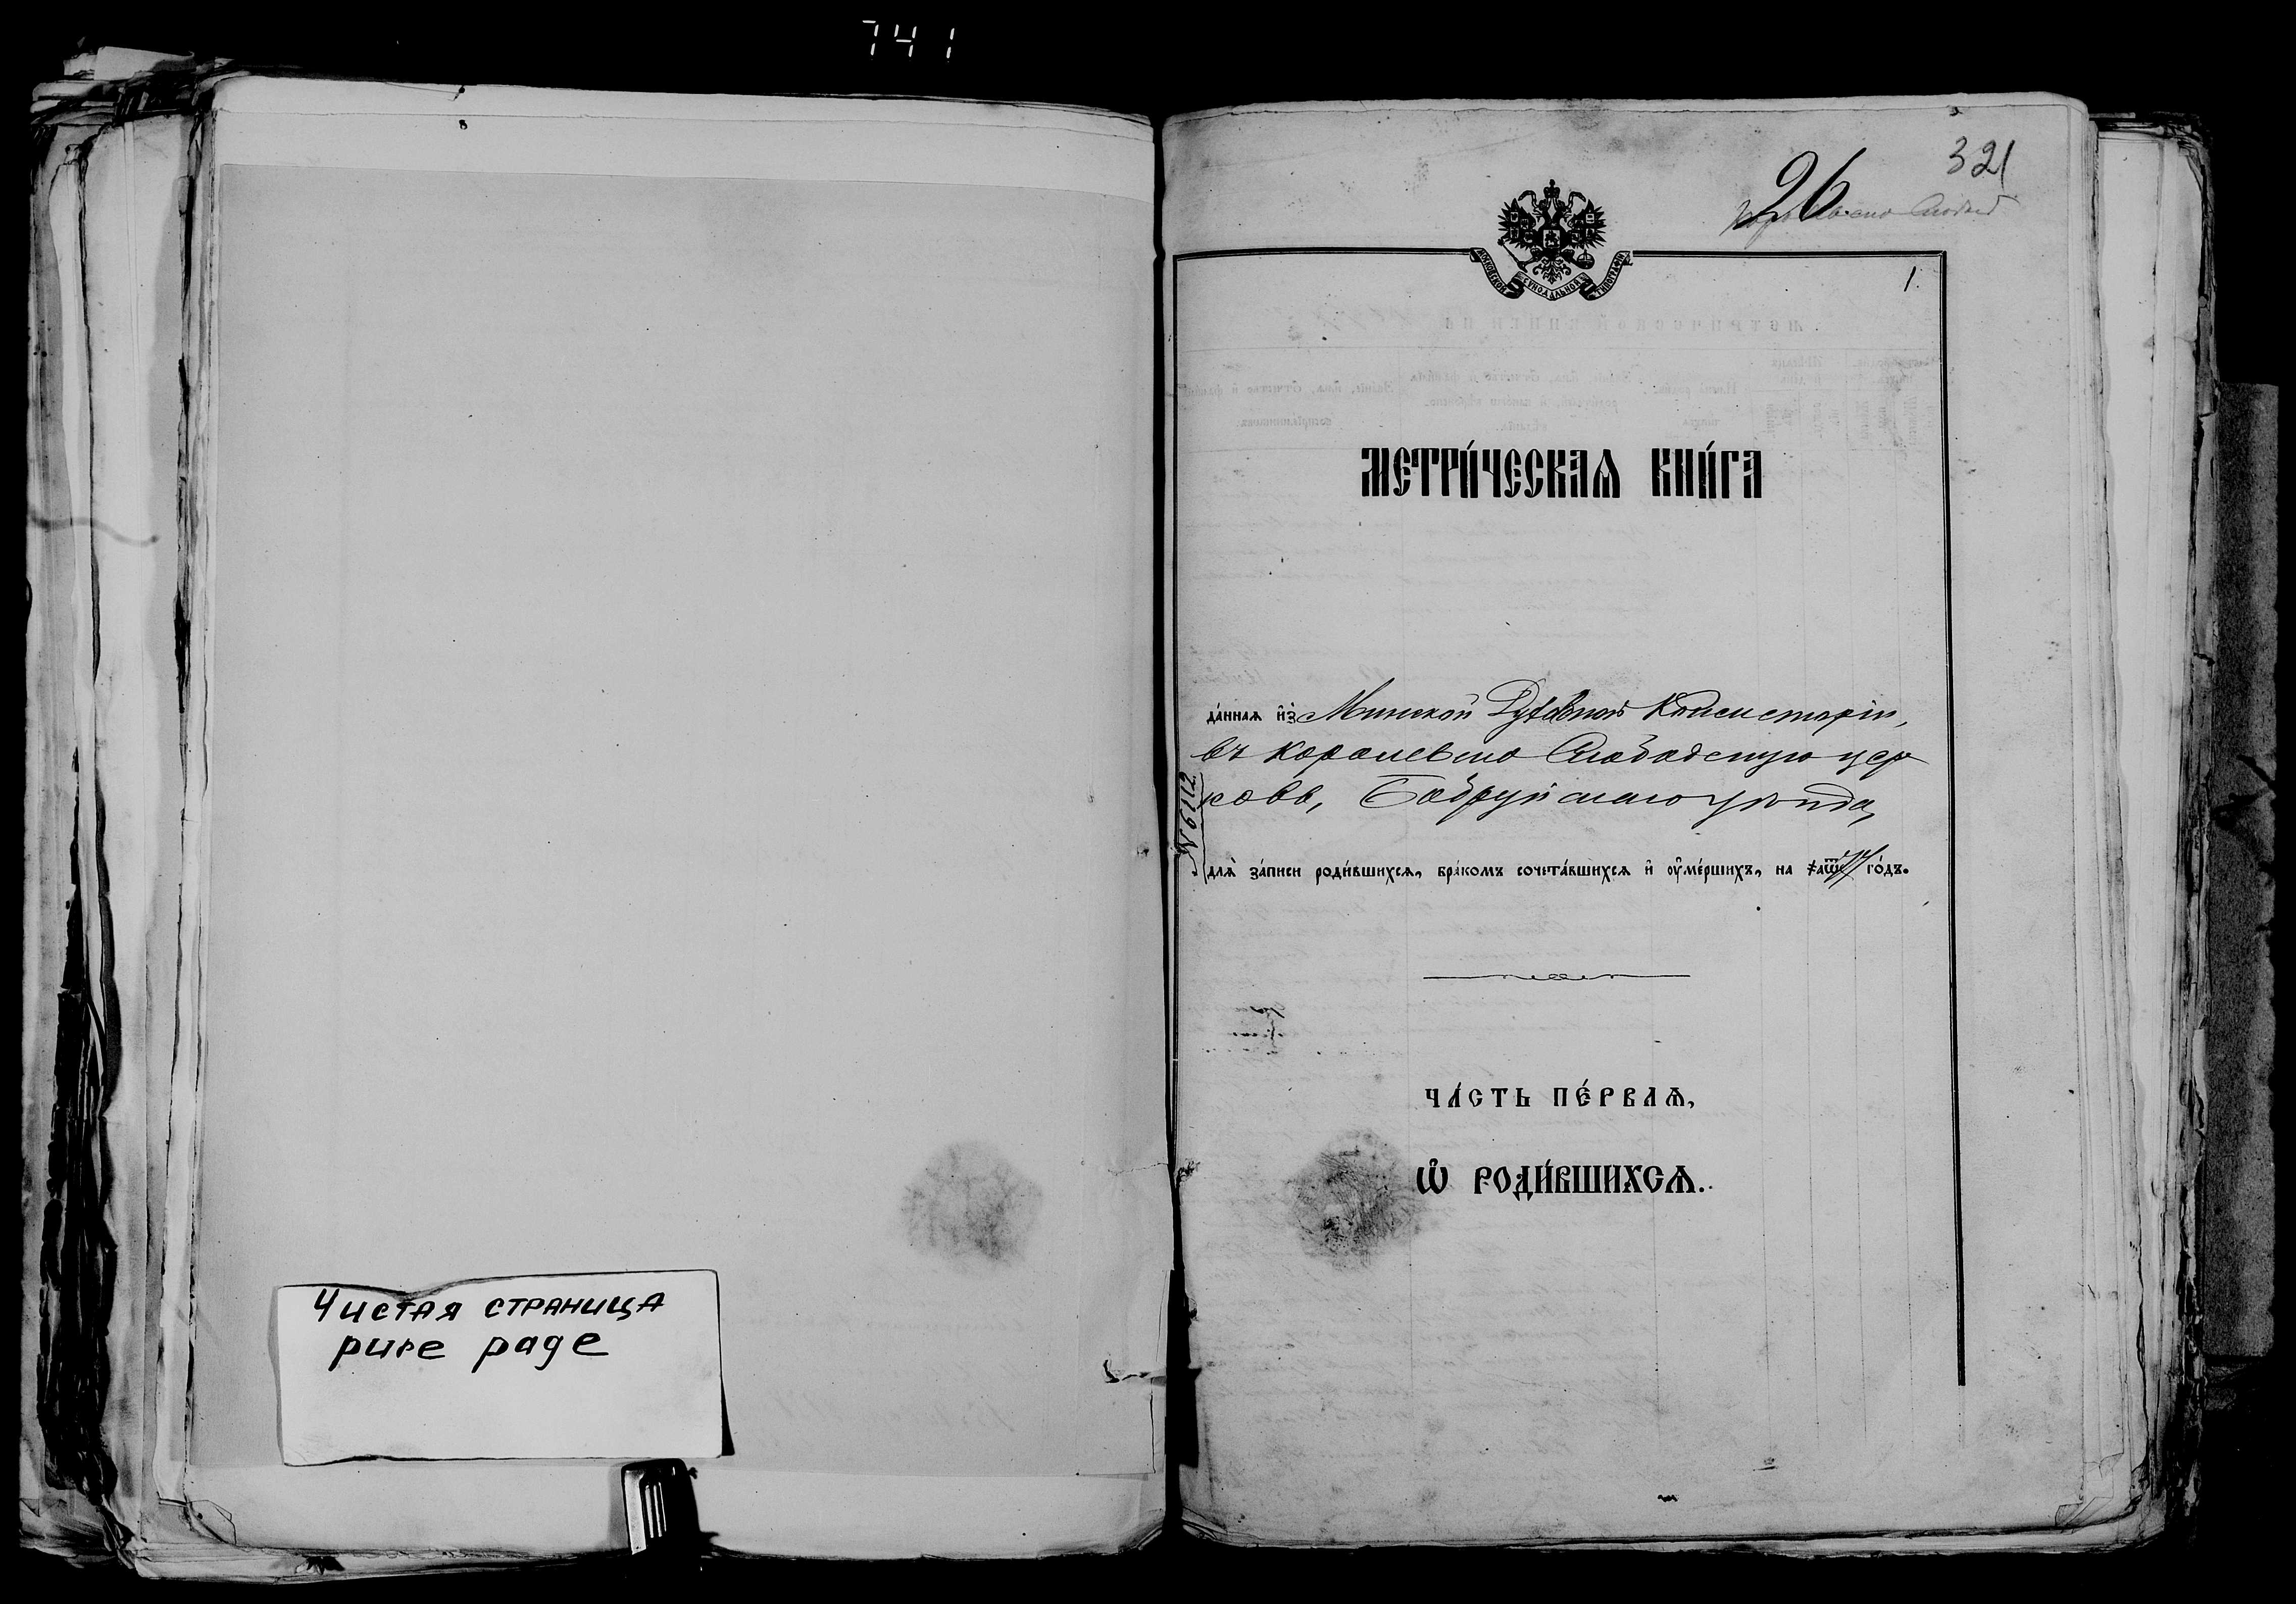 741
Чистая страница
pure page
321
26
1.
МОСКОВСКОЙ СѴНОДАЛЬНОЙ ТИПОГРАФІИ
МЕТРИ́ЧЕСКАѦ КНИ́ГА
да́нная и҆з̾ Минской Духовной Консисторіи,
въ Королевско Слободскую цер
ковь, Бобруйскаго уѣзда,
№ 6112
для̀ за́писи роди́вшихся, бра́комъ сочета́вшихся и҆ ᲂу҆ме́ршихъ, на го́дъ.
ЧА́СТЬ ПЕ́РВАѦ,
Ѽ РОДИ́ВШИХСѦ.